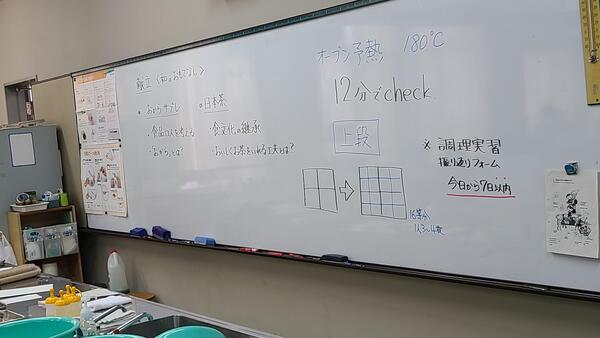 献立〈和のおもてなし〉
・おからサブレ
・食品ロスを考える
・"おから"とは?
・日本茶
・食文化の継承
・おいしくお茶をいれる工夫とは?
オーブン予熱 180℃
12分でcheck
上段
16等分
※調理実習
振り返りフォーム
今日から7日以内